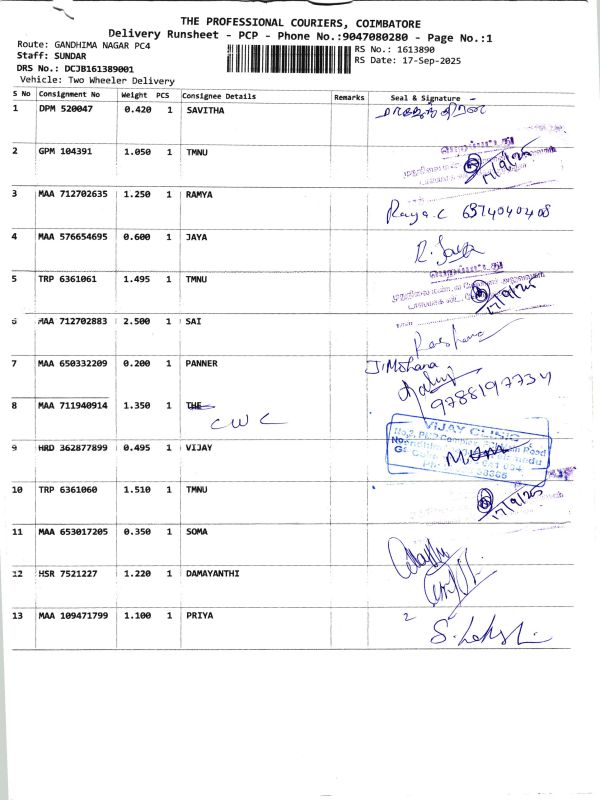 THE PROFESSIONAL COURIERS, COIMBATORE
Delivery Runsheet - PCP - Phone No.:9047080280 - Page No.:1
Route: GANDHIMA NAGAR PC4
RS No.: 1613890
Staff: SUNDAR
RS Date: 17-Sep-2025
DRS No.: DCJB161389001
Vehicle: Two Wheeler Delivery
S No Consignment No Weight PCS Consignee Details Remarks Seal & Signature
1 DPM 520047 0.420 1 SAVITHA
2 GPM 104391 1.050 1 TMNU 17/9/25
3 MAA 712702635 1.250 1 RAMYA
6374040408
4 MAA 576654695 0.600 1 JAYA R. Jaya
5 TRP 6361061 1.495 1 TMNU 17/9/25
6 MAA 712702883 2.500 1 SAI
7 MAA 650332209 0.200 1 PANNER J.Mohana
9788197734
8 MAA 711940914 1.350 1 THE
CWC
VIJAY CLINIC
9 HRD 362877899 0.495 1 VIJAY
10 TRP 6361060 1.510 1 TMNU 17/9/25
11 MAA 653017205 0.350 1 SOMA
12 HSR 7521227 1.220 1 DAMAYANTHI
13 MAA 109471799 1.100 1 PRIYA 2